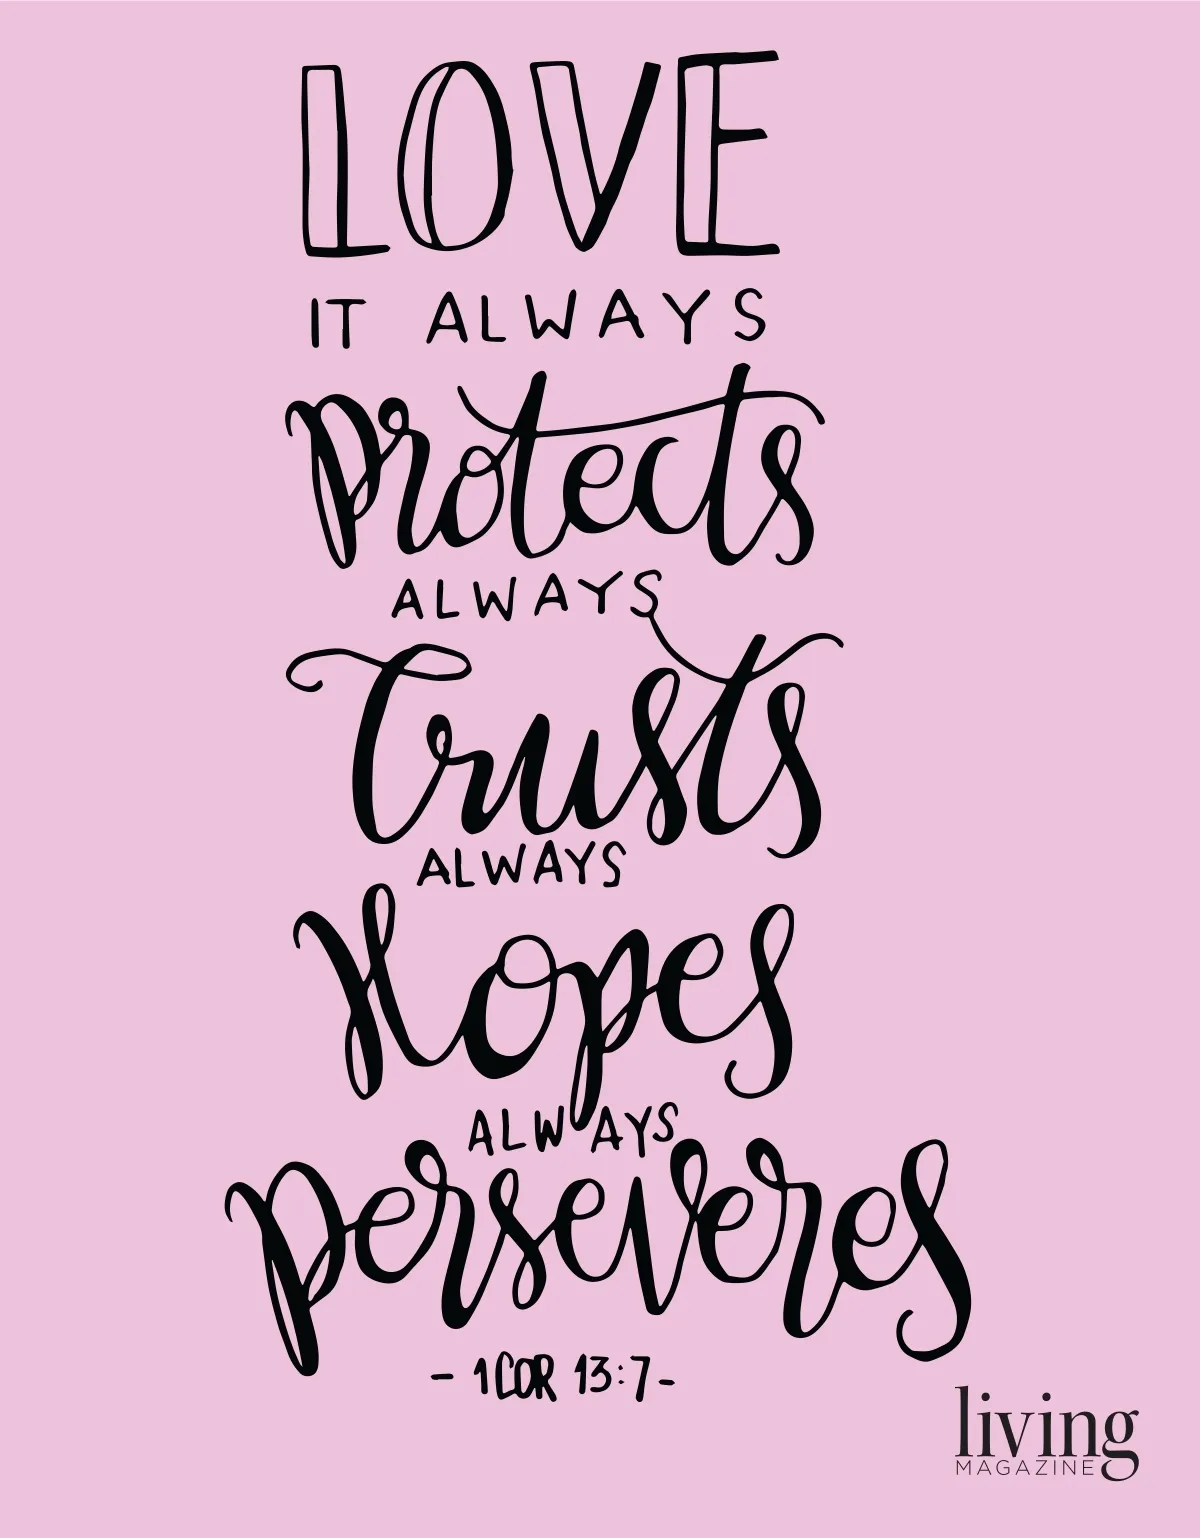 LOVE
IT ALWAYS
Protects
ALWAYS
Trusts
ALWAYS
Hopes
ALWAYS
Perseveres
- 1COR 13:7-
living
MAGAZINE